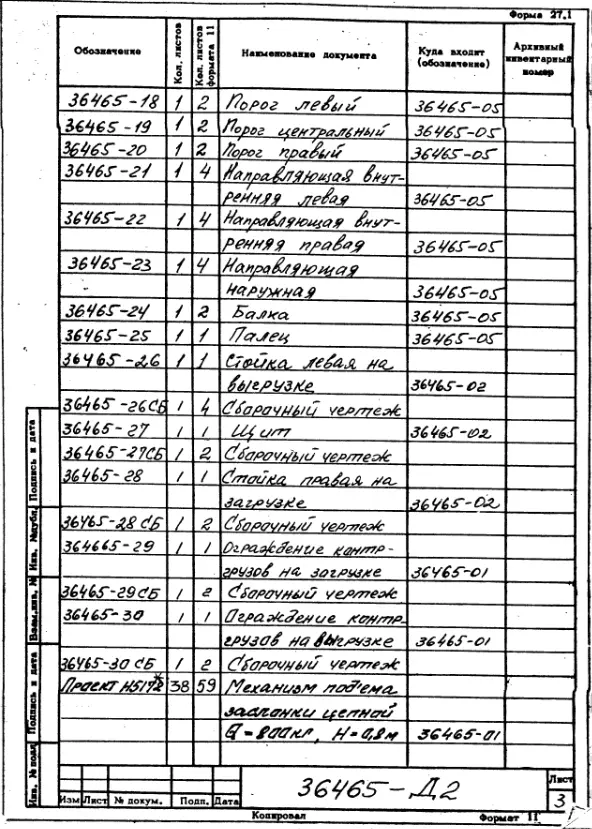 Форма 27.1
Обозначение Кол. листов Кол. листов формата 11 Наименование документа Куда входит (обозначение) Архивный инвентарный номер
36465-18 1 2 Порог левый 36465-05
36465-19 1 2 Порог центральный 36465-05
36465-20 1 2 Порог правый 36465-05
36465-21 1 4 Направляющая внут-
ренняя левая 36465-05
36465-22 1 4 Направляющая внут-
ренняя правая 36465-05
36465-23 1 4 Направляющая
наружная 36465-05
36465-24 1 2 Балка 36465-05
36465-25 1 1 Палец 36465-05
36465-26 1 1 Стойка левая на
выгрузке 36465-02
36465-26СБ 1 4 Сборочный чертеж
36465-27 1 1 Щит 36465-02
36465-27СБ 1 2 Сборочный чертеж
36465-28 1 1 Стойка правая на
загрузке 36465-02
36465-28СБ 1 2 Сборочный чертеж
364665-29 1 1 Ограждение контр-
грузов на загрузке 36465-01
36465-29СБ 1 2 Сборочный чертеж
36465-30 1 1 Ограждение контр-
грузов на выгрузке 36465-01
36465-30 СБ 1 2 Сборочный чертеж
Проект 38 59 Механизм подъема
заслонки цепной
Q=800кг, H=0,8м 36465-01
Подпись и дата
Инв. №дубл.
Взам.инв. №
Подпись и дата
Инв. № подл
36465-Д2
Лист
3
Изм Лист № докум. Подп. Дата
Копировал Формат 11